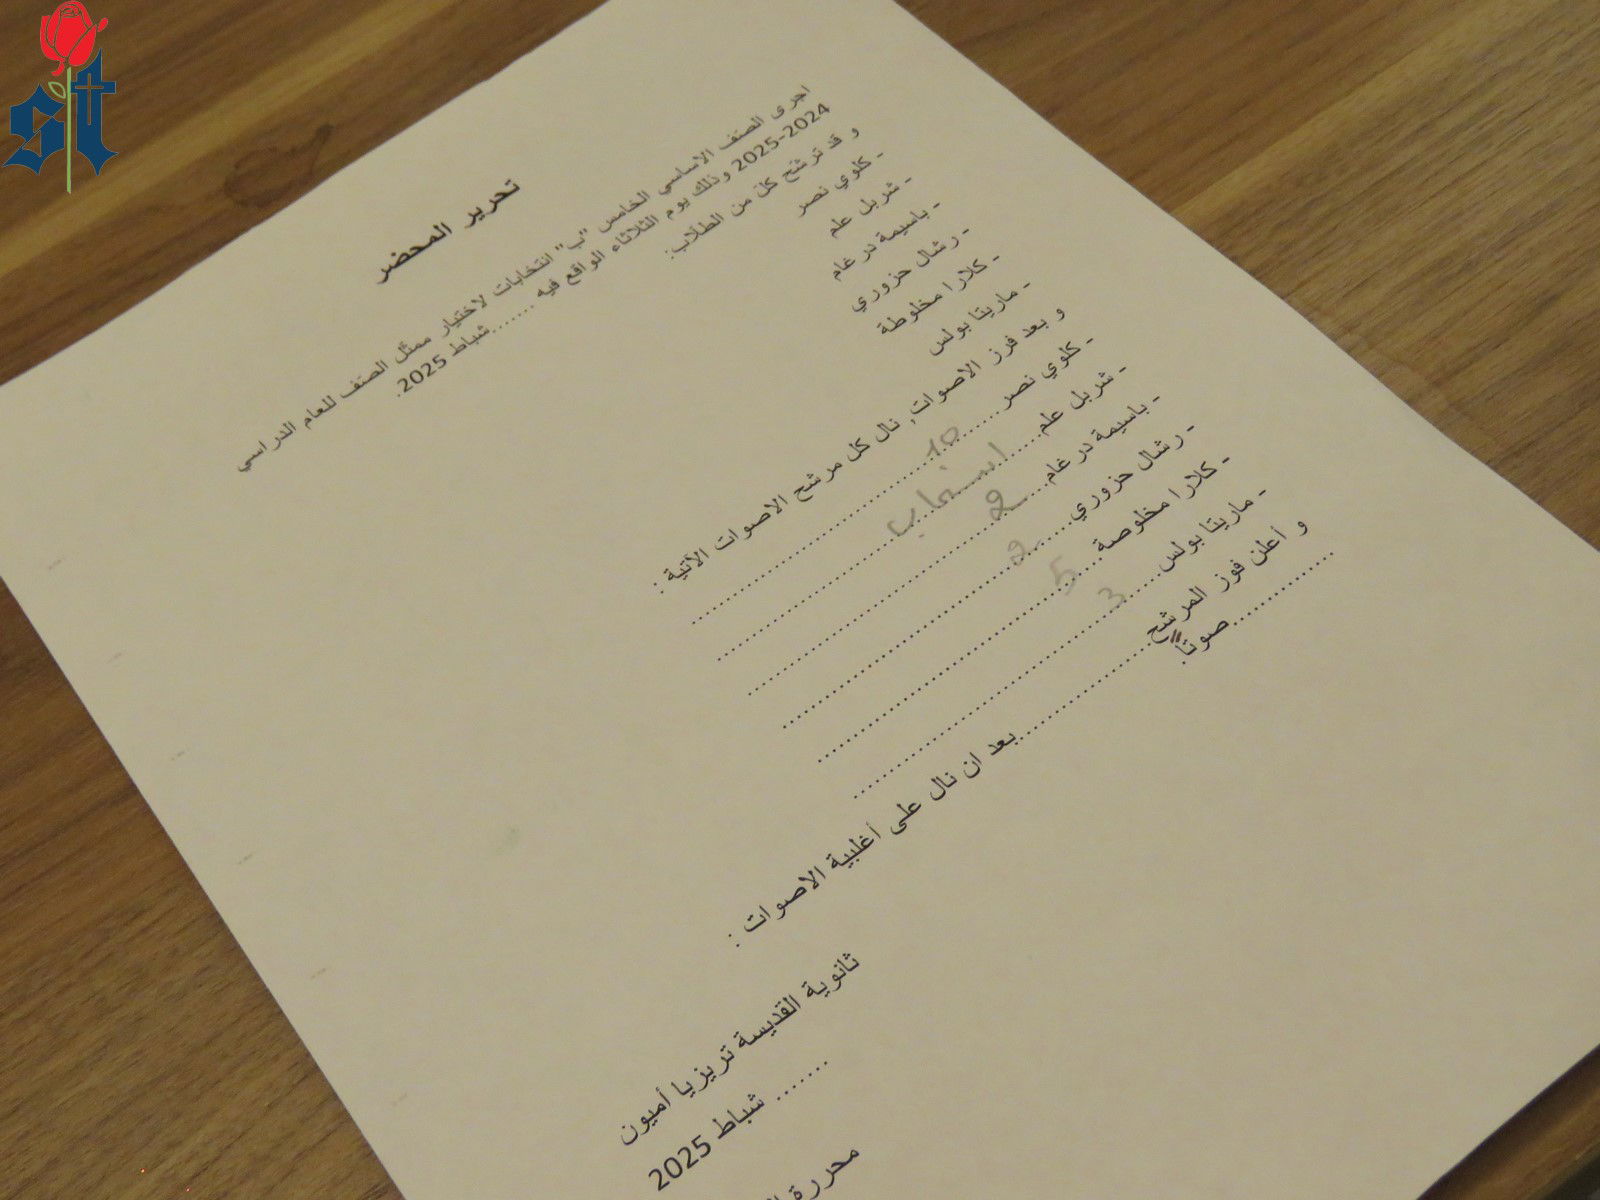 st
تحرير المحضر
اجرى الصف الاساسي الخامس "ب" انتخابات لاختيار ممثّل الصف للعام الدراسي
2024-2025 وذلك يوم الثلاثاء الواقع فيه .......شباط 2025.
و قد ترشّح كلّ من الطلاب:
- كلوي نصر
- شربل علم
- باسيمة درغام
- رشال حزوري
- كلارا مخلوطة
- ماريتا بولس
و بعد فرز الاصوات, نال كل مرشح الاصوات الآتية :
- كلوي نصر ..... 10 .....
- شربل علم ..... انسحاب .....
- باسيمة درغام ..... 2 .....
- رشال حزوري ..... 2 .....
- كلارا مخلوصة ..... 5 .....
- ماريتا بولس ..... 3 .....
و أعلن فوز المرشح ..............بعد ان نال على أغلبية الاصوات :
..............صوتاً.
ثانوية القديسة تريزيا أميون
....... شباط 2025
محررة